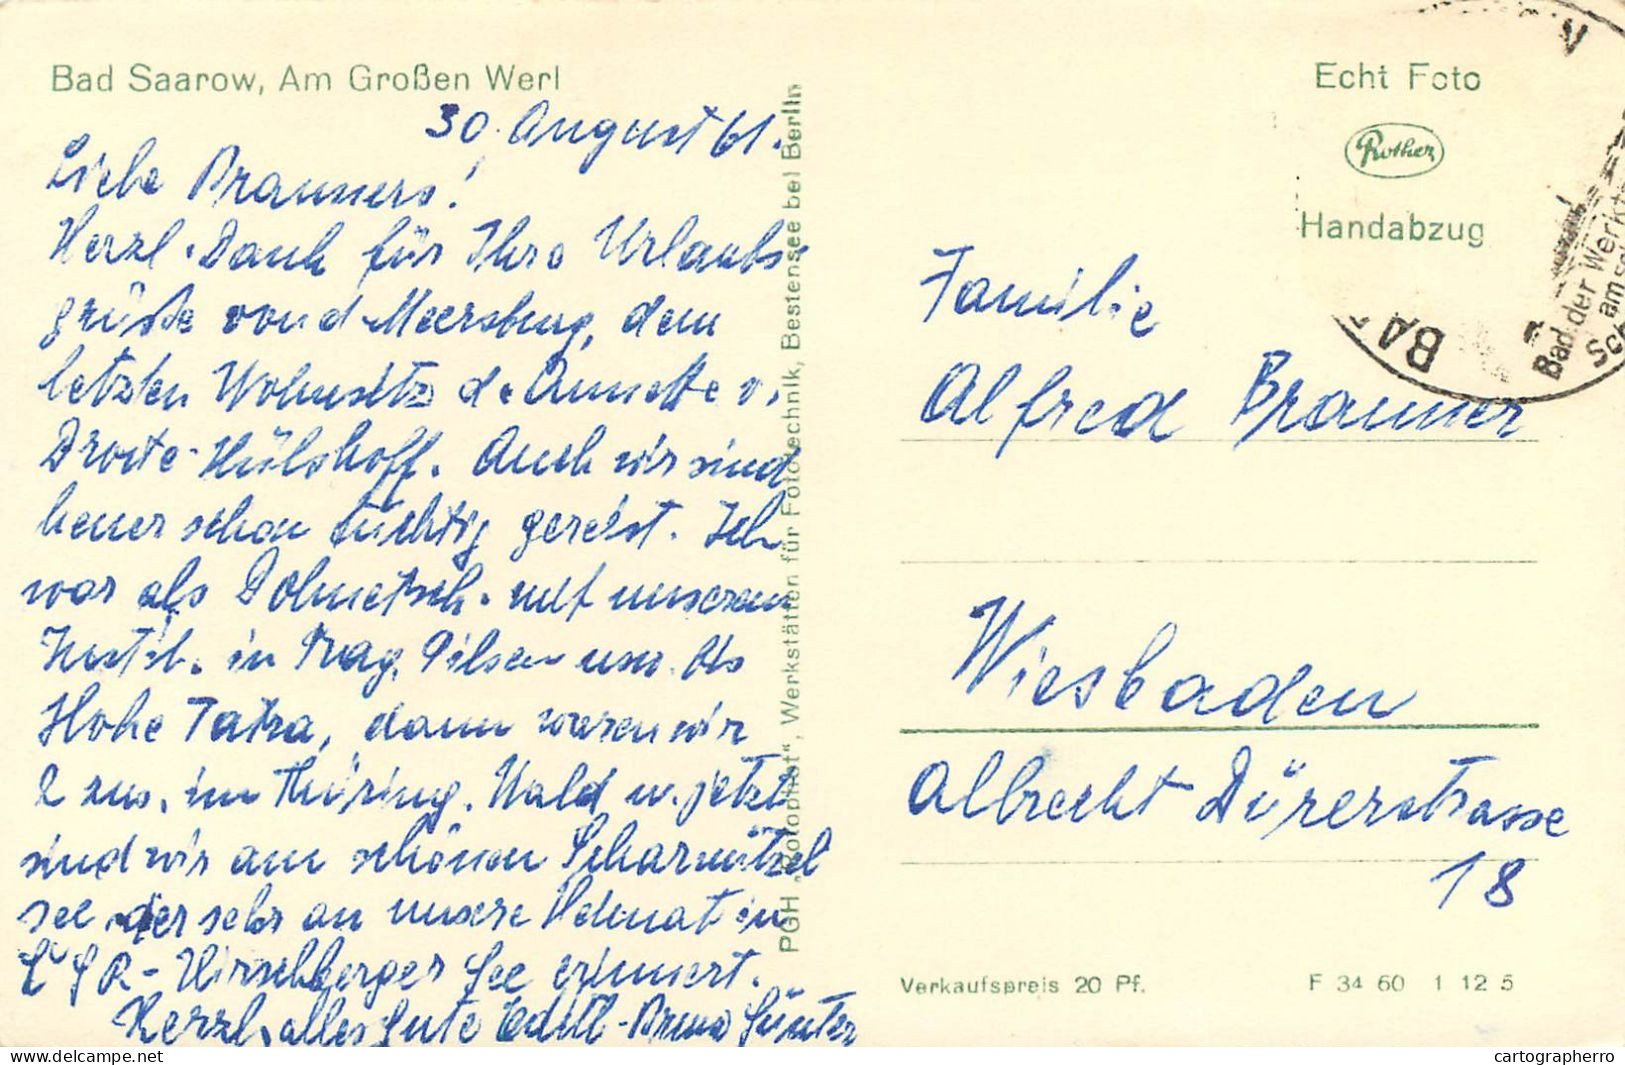 Bad Saarow, Am Großen Werl
30. August 61.
Liebe Brauners!
Herzl. Dank für Ihre Urlaubs-
grüße von d. Meersburg, dem
letzten Wohnsitz d. Annette v.
Droste-Hülshoff. Auch wir sind
heuer schon tüchtig gereist. Ich
war als Dolmetsch. mit unserem
Instit. in Prag, Pilsen usw. bis
Hohe Tatra, dann waren wir
2 zus. im Thüring. Wald u. jetzt
sind wir am schönen Scharmützel
see, der sehr an unsere Heimat in
ČSR - Hirschberger See erinnert.
Herzl. alles Gute Edith - Bruno Günter
PGH „Rotophot“, Werkstätten für Fototechnik, Bestensee bei Berlin
Echt Foto
Rother
Handabzug
BA
Bad der Werkt
am Sc
Sch
Familie
Alfred Brauner
Wiesbaden
Albrecht Dürerstrasse
18
Verkaufspreis 20 Pf.
F 34 60 1 12 5
delcampe.net
cartographerro